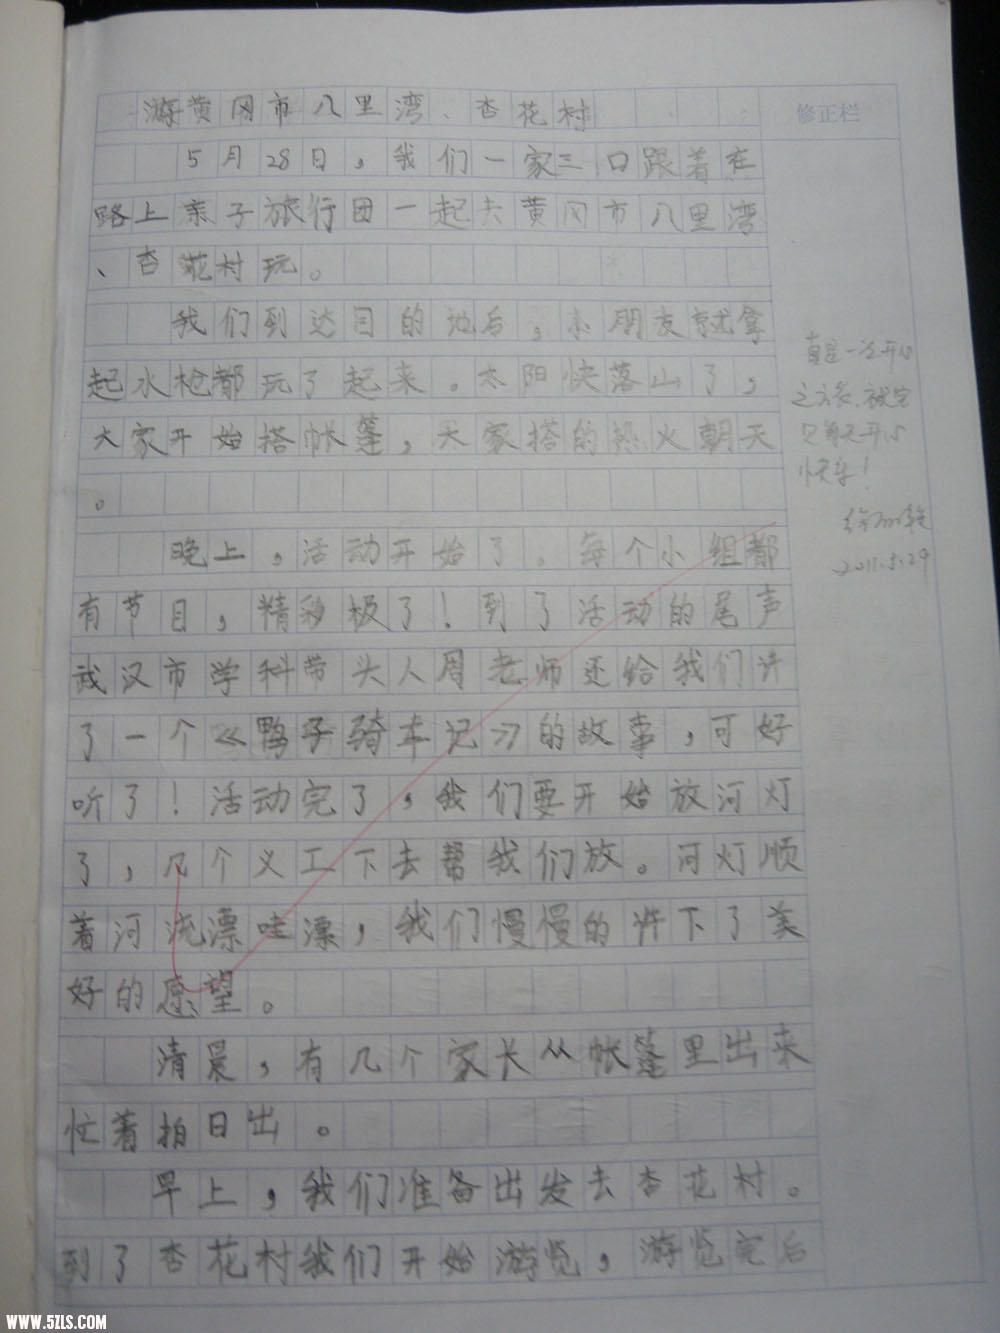 游黄冈市八里湾、杏花村
修正栏
5月28日，我们一家三口跟着在
路上亲子旅行团一起去黄冈市八里湾
、杏花村玩。
我们到达目的地后，小朋友就拿
起水枪都玩了起来。太阳快落山了，
大家开始搭帐篷，大家搭的热火朝天
。
晚上，活动开始了。每个小组都
有节目，精秒极了！到了活动的尾声
武汉市学科带头人周老师还给我们讲
了一个《鸭子骑车记》的故事，可好
听了！活动完了，我们要开始放河灯
了，几个义工下去帮我们放。河灯顺
着河流漂哇漂，我们慢慢的许下了美
好的愿望。
清晨，有几个家长从帐篷里出来
忙着拍日出。
早上，我们准备出发去杏花村。
到了杏花村我们开始游览，游览完后
真是一次开心
之旅
每天开心
快乐！
2011.5.29
WWW.5ZLS.COM